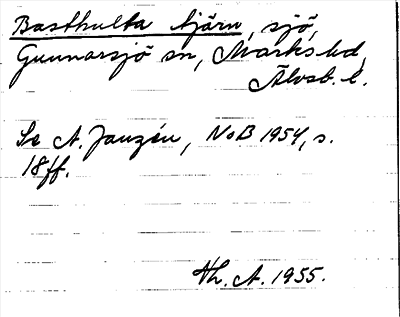 Basthulta tjärn, sjö,
Gunnarsjö sn, Marks hd,
Älvsb. l.
Se A. Janzén, NoB 1954, s.
18ff.
Th. A. 1955.